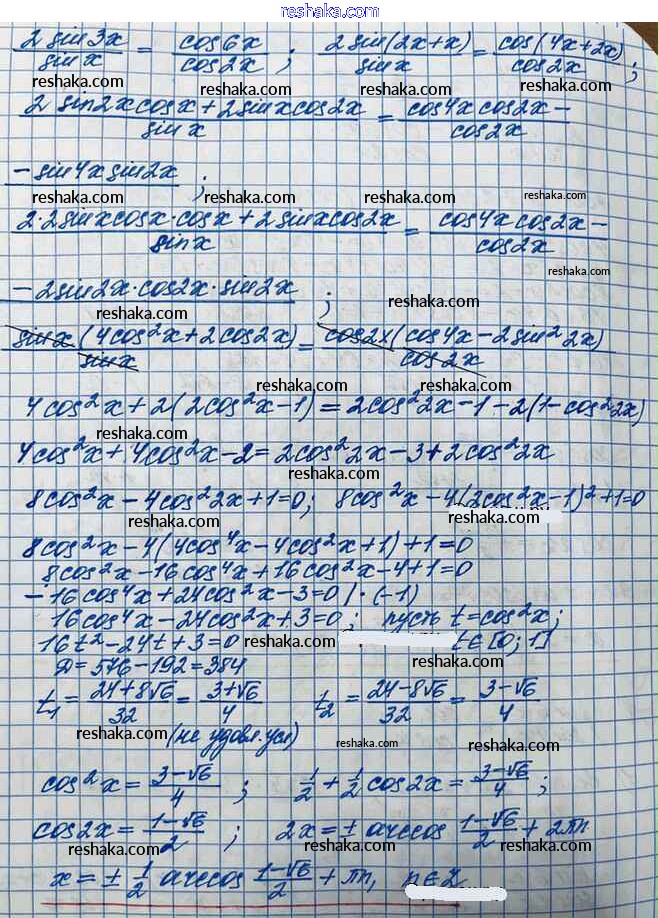 reshaka.com
2 sin3x / sinx = cos6x / cos2x ; 2 sin(2x+x) / sinx = cos(4x+2x) / cos2x ;
reshaka.com reshaka.com reshaka.com
2 sin2x cosx + 2 sinx cos2x / sinx = cos4x cos2x − / cos2x
− sin4x sin2x ;
reshaka.com reshaka.com reshaka.com reshaka.com
2·2 sinx cosx·cosx + 2 sinx cos2x / sinx = cos4x cos2x − / cos2x
reshaka.com
− 2 sin2x·cos2x·sin2x ;
reshaka.com reshaka.com
sinx (4cos²x + 2cos2x) / sinx = cos2x (cos4x − 2 sin² 2x) / cos2x
reshaka.com reshaka.com
4cos²x + 2(2cos²x − 1) = 2cos²2x − 1 − 2(1 − cos²2x)
reshaka.com
4cos²x + 4cos²x − 2 = 2cos²2x − 3 + 2cos²2x
reshaka.com
8cos²x − 4cos²2x + 1 = 0; 8cos²x − 4(2cos²x − 1)² + 1 = 0
reshaka.com reshaka.com
8cos²x − 4(4cos⁴x − 4cos²x + 1) + 1 = 0
8cos²x − 16cos⁴x + 16cos²x − 4 + 1 = 0
reshaka.com
− 16cos⁴x + 24cos²x − 3 = 0 | · (−1)
16cos⁴x − 24cos²x + 3 = 0; пусть t = cos²x;
16t² − 24t + 3 = 0 reshaka.com t ∈ [0; 1]
D = 576 − 192 = 384
t₁ = 24+8√6 / 32 = 3+√6 / 4 t₂ = 24−8√6 / 32 = 3−√6 / 4
reshaka.com (не удовл. усл) reshaka.com reshaka.com
cos²x = 3−√6 / 4 ; 1/2 + 1/2 cos2x = 3−√6 / 4 ;
reshaka.com reshaka.com
cos2x = 1−√6 / 2 ; 2x = ± arccos 1−√6 / 2 + 2πn
reshaka.com reshaka.com reshaka.com
x = ± 1/2 arccos 1−√6 / 2 + πn, n∈Z
reshaka.com reshaka.com